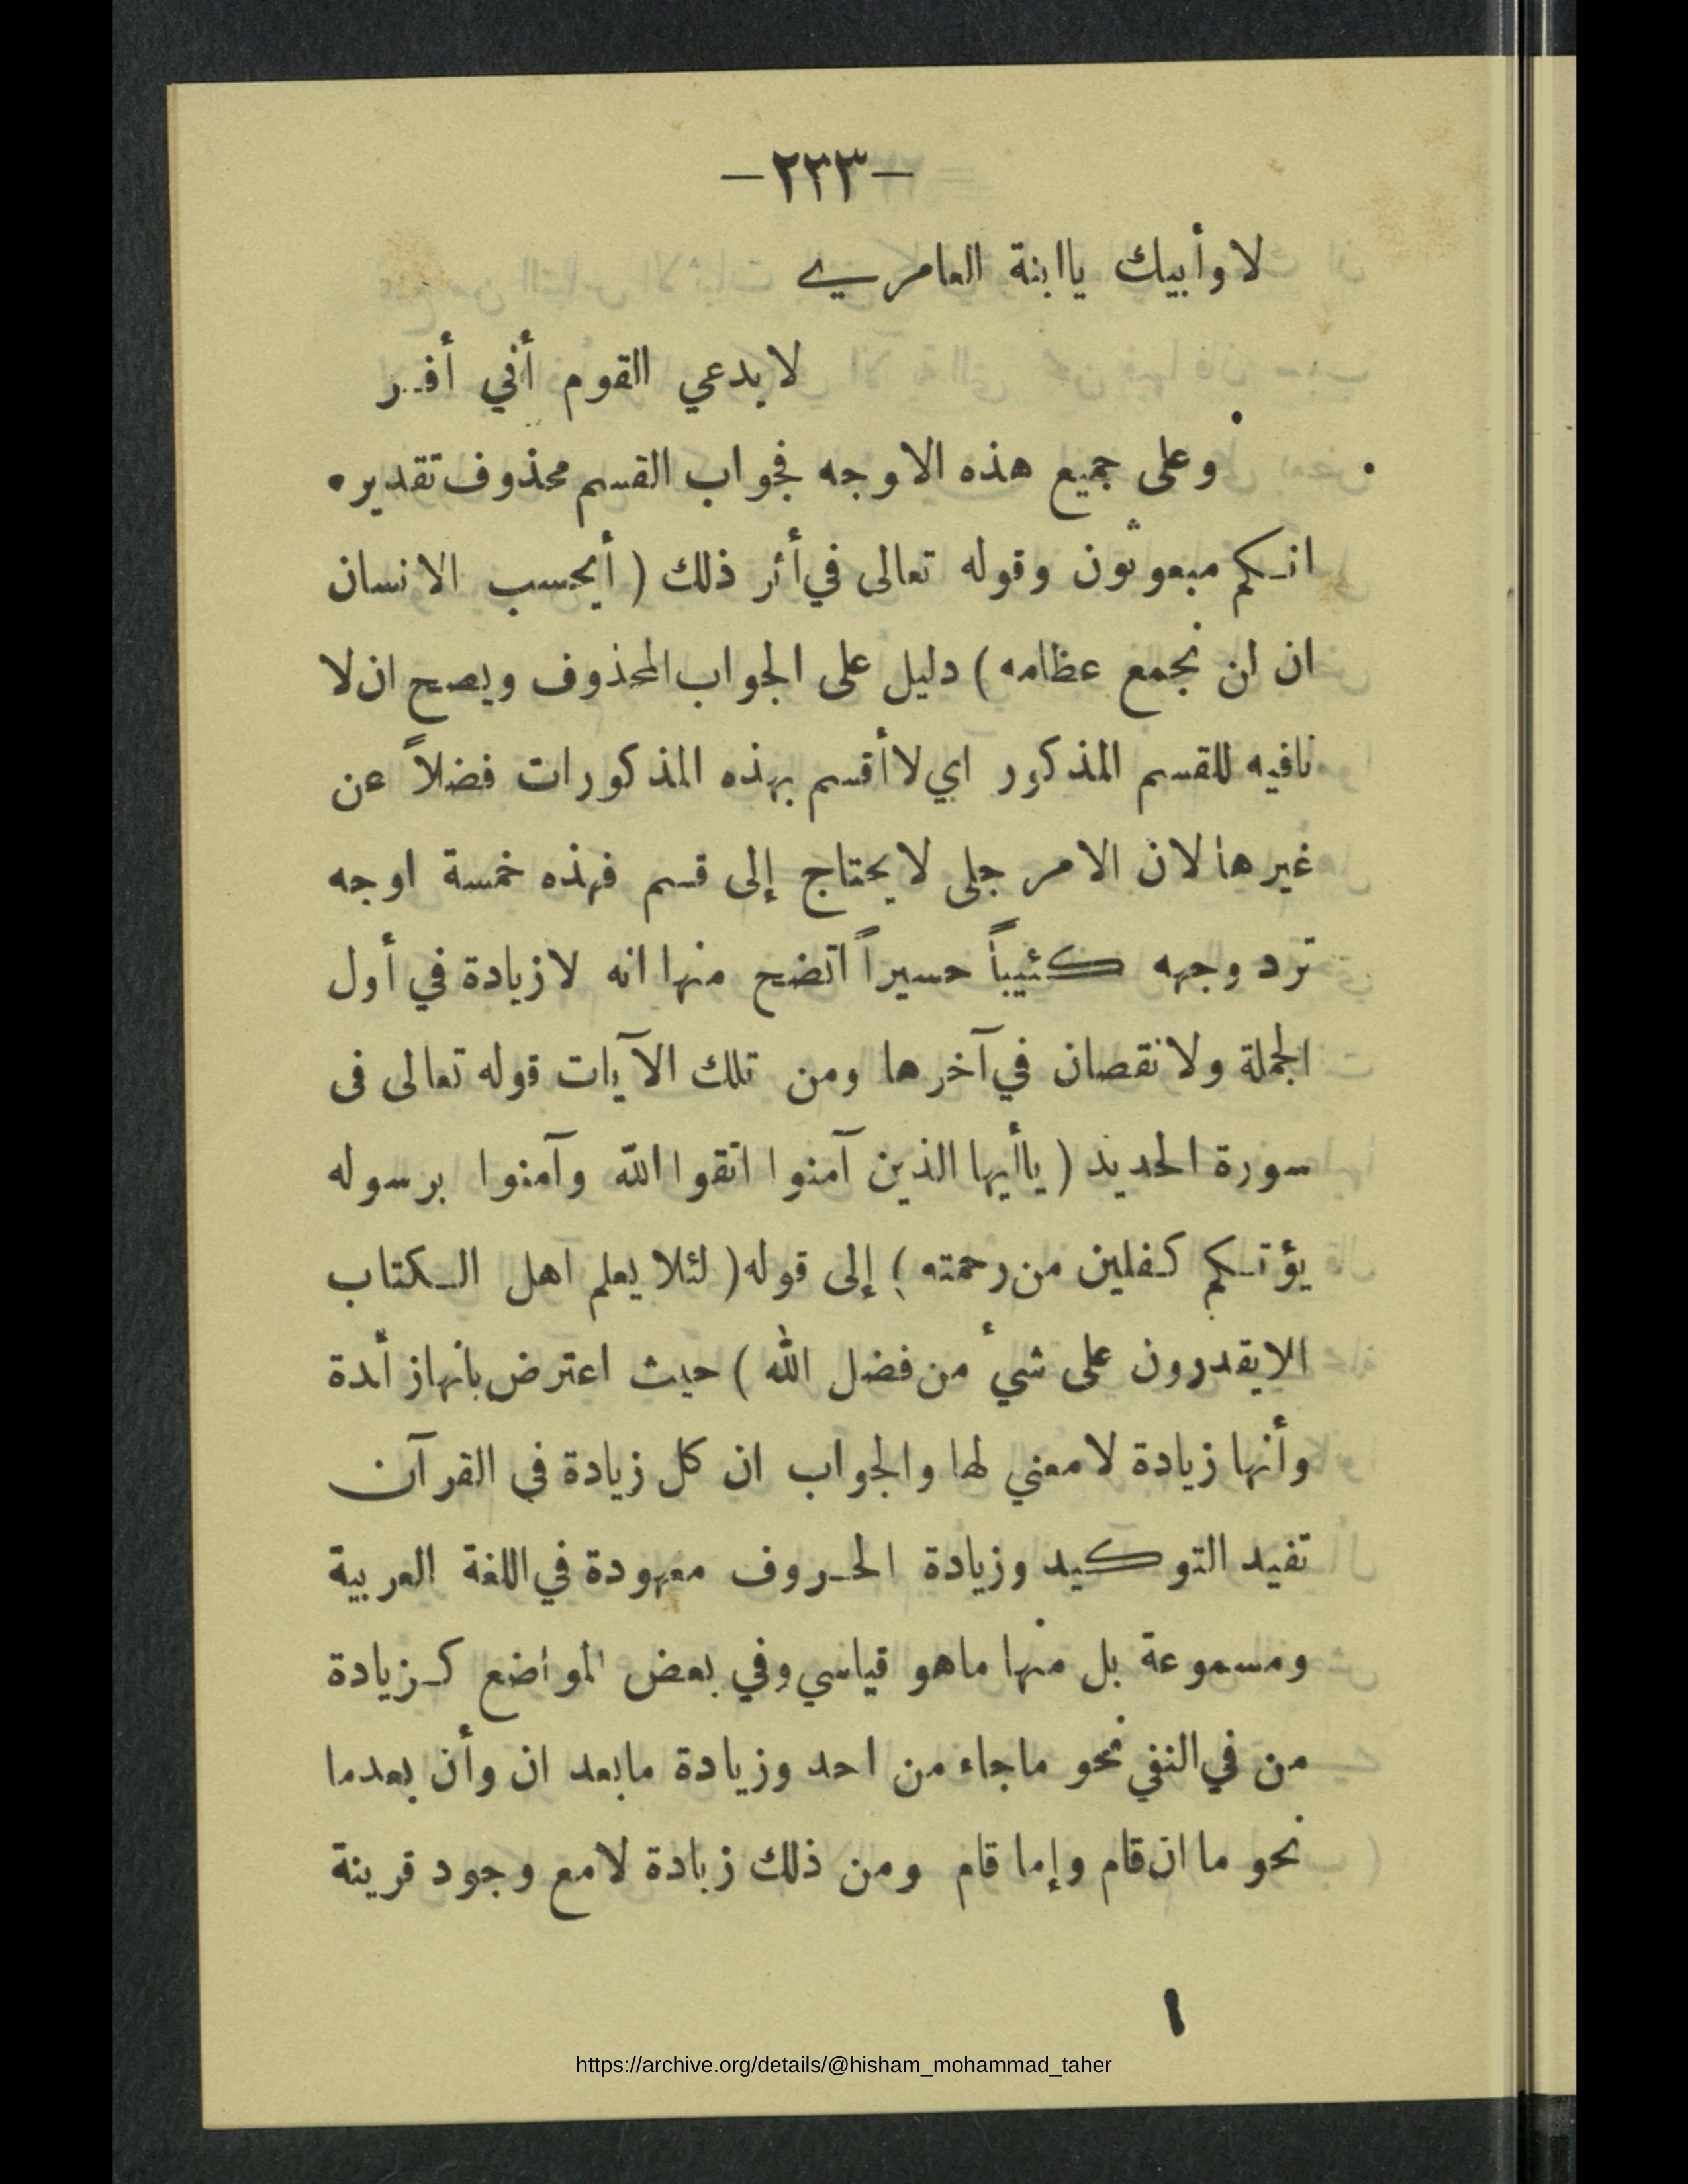 —٢٣٣—
لا وأبيك ياابنة العامري
لا يدعي القوم أني أفر
وعلى جميع هذه الاوجه فجواب القسم محذوف تقديره
انكم مبعوثون وقوله تعالى في أثر ذلك ( أيحسب الانسان
ان لن نجمع عظامه ) دليل على الجواب المحذوف ويصح ان لا
نافيه للقسم المذكور اي لا أقسم بهذه المذكورات فضلاً عن
غيرها لان الامر جلى لا يحتاج إلى قسم فهذه خمسة اوجه
ترد وجهه كئيباً حسيراً اتضح منها انه لا زيادة في أول
الجملة ولا نقصان في آخرها ومن تلك الآيات قوله تعالى فى
سورة الحديد ( ياأيها الذين آمنوا اتقوا الله وآمنوا برسوله
يؤتكم كفلين من رحمته ) إلى قوله ( لئلا يعلم اهل الكتاب
الايقدرون على شيء من فضل الله ) حيث اعترض بانها زائدة
وأنها زيادة لا معني لها والجواب ان كل زيادة في القرآن
تفيد التوكيد وزيادة الحروف معهودة في اللغة العربية
ومسموعة بل منها ماهو قياسي وفي بعض المواضع كزيادة
من في النفي نحو ماجاء من احد وزيادة مابعد ان وأن بعدما
نحو ما ان قام وإما قام ومن ذلك زيادة لا مع وجود قرينة
١
https://archive.org/details/@hisham_mohammad_taher